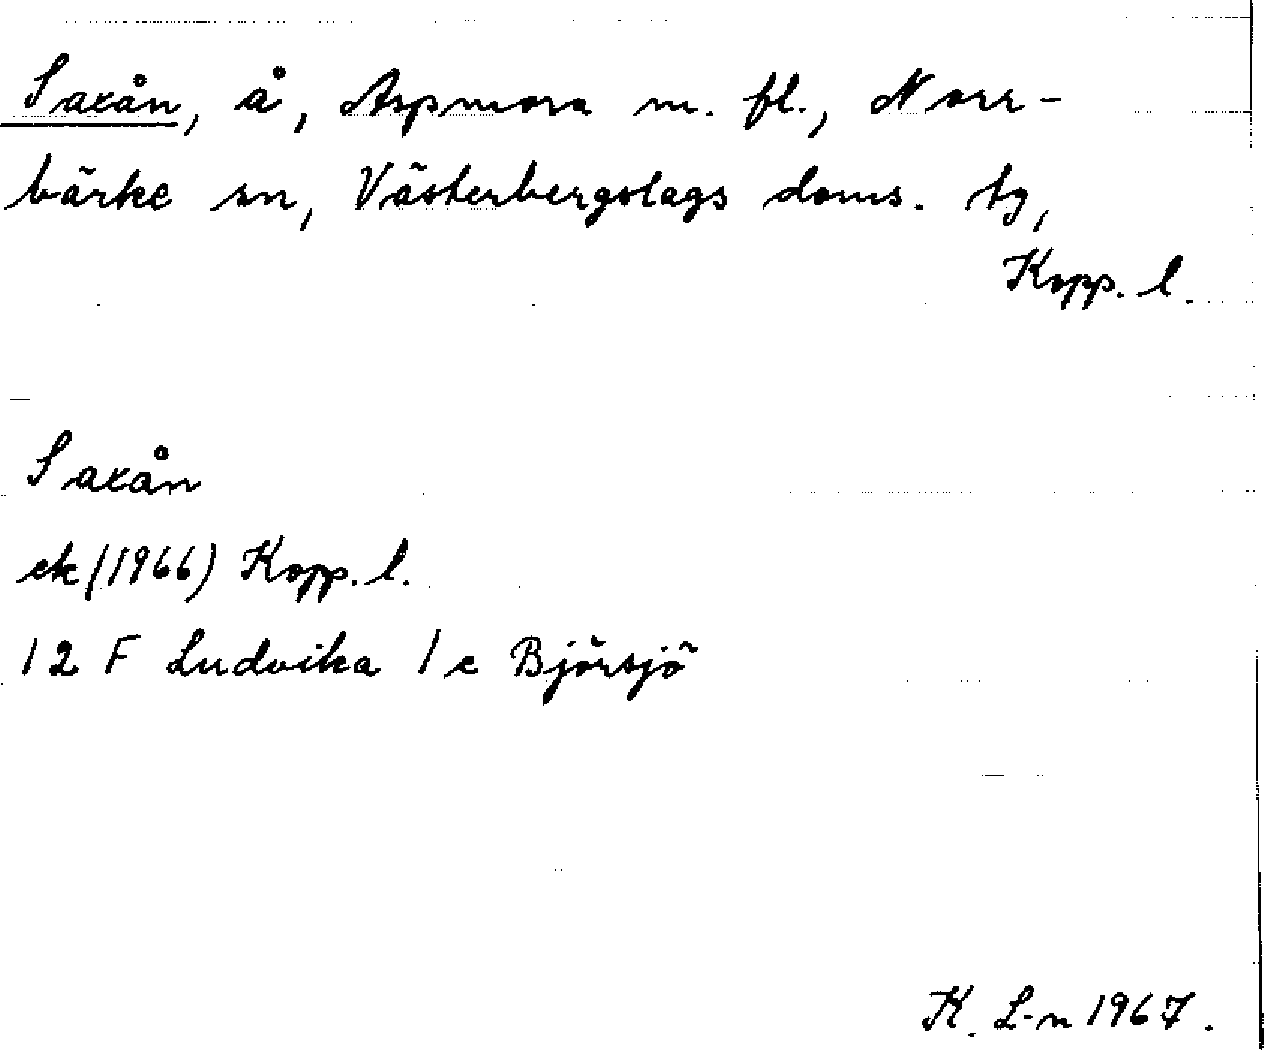 Saxån, å, Aspmora m. fl., Norr-
bärke sn, Västerbergslags doms. tg,
Kopp. l.
Saxån
ek (1966) Kopp. l.
12 F Ludvika 1 c Björsjö
K. L-n 1967.